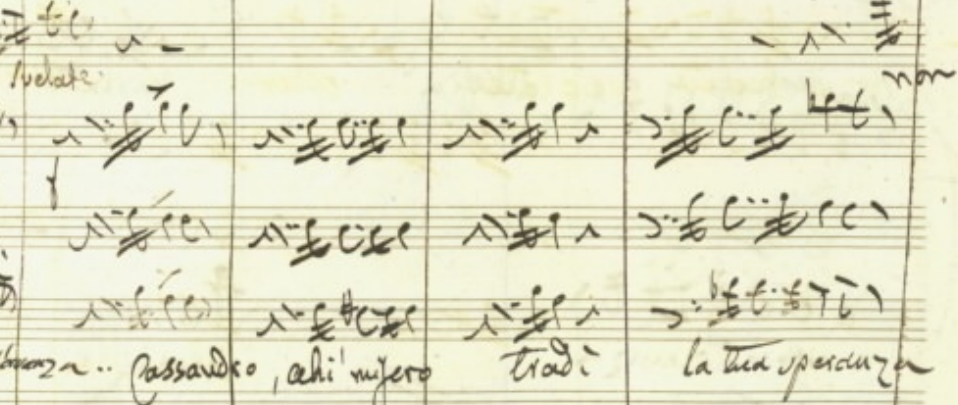 svelate.
non
Cassandro, ahi misero tradì la tua speranza